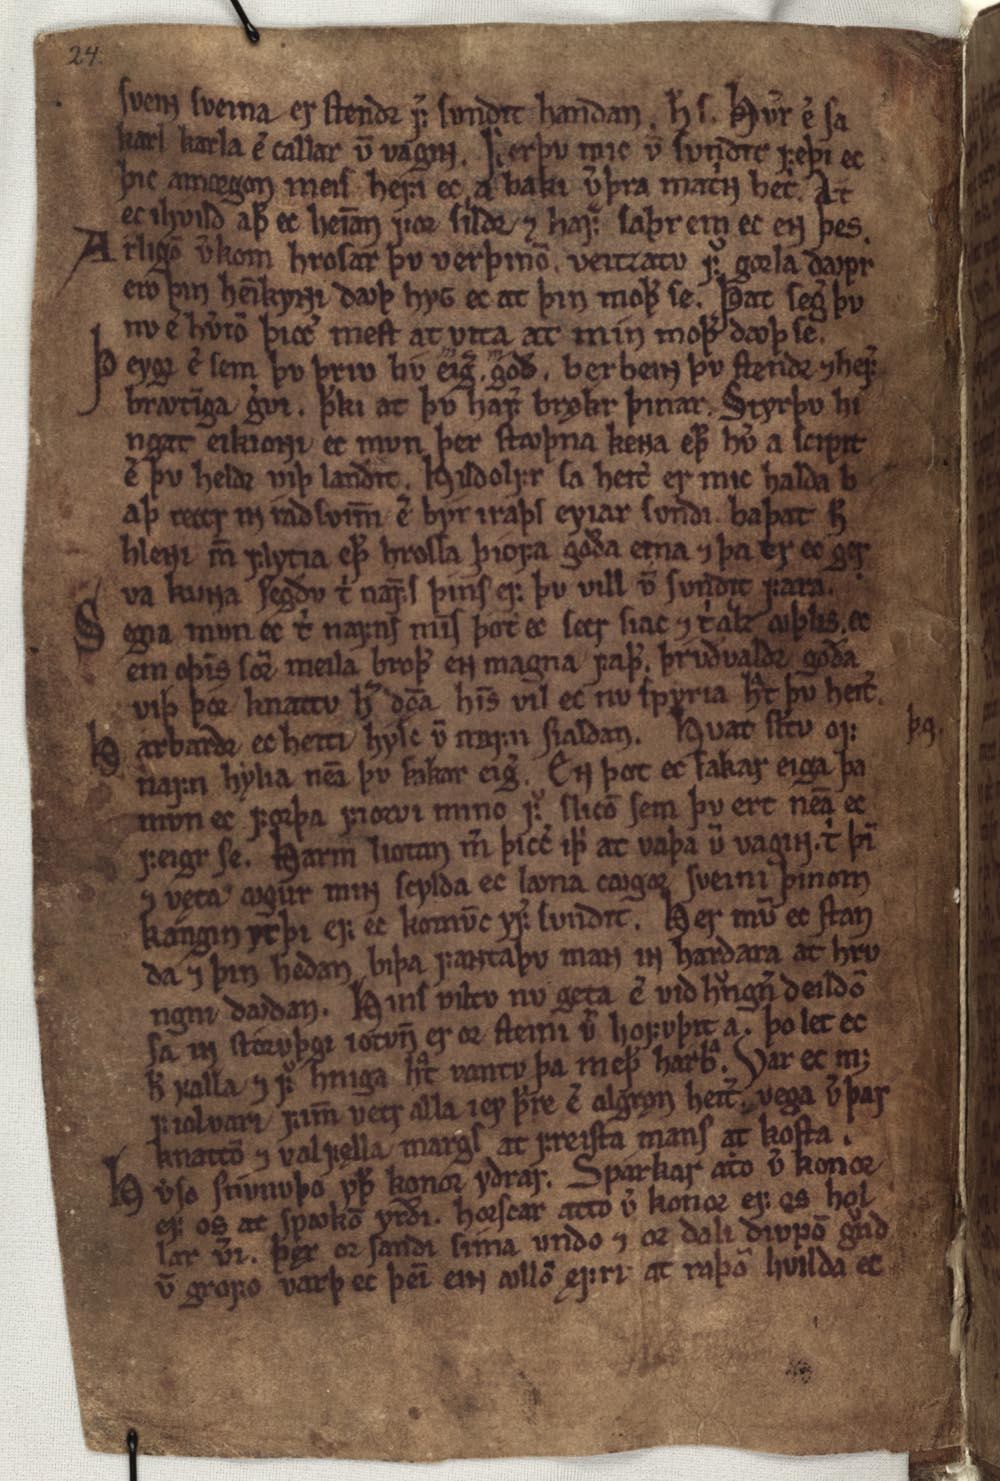 24.
sveiɴ sveina er stendr f͛ sundit handan. h͛ s. Hv͛r e͛ sa
karl karla e͛ callar v̄ vágiɴ. Ferþu mic v̄ sundit fǫþi ec
þic amorgon meis hefi ec a baki v͛þra matriɴ bet͛. At
ec ihvild aþ͛ ec heiman fór sildr ⁊ hafra saþr em ec eɴ þes.
Arligō v͛kom hrosar þu verþinō. veitzatu f͛ gorla dapr
ero þin heīkyɴi dꜹþ hyg ec at þin moþ͛ se. Þat seg͛ þu
nu e͛ hv͛iō þicc͛ mest at vita at min moþ͛ dꜹþ se.
Þeygi e͛ sem þu þriu bú eig͛ góð. berbeiɴ þu stendr ⁊ hef͛
brꜹtīga g͛vi. þ͛ki at þu haf͛ brǫkr þinar. Styrþu hi
ngat eikioɴi ec mun þer stꜹþna keɴa eþ͛ hv͛ a scipit
e͛ þu heldr viþ landit. Hildolfr sa heit͛ er mic halda b
aþ reccr iɴ rádsvīɴi e͛ býr iráþs eyiar sundi. baþat h͛
hleɴi m̄ flytia eþ͛ hrossa þiofa góða eina ⁊ þa er ec ger
va kuɴa segðu t͛ nafs þins ef þu vill v̄ sundit fara.
Segia mun ec t͛ nafns mīs þót ec secr siac ⁊ t͛ alz ꜹþlis. ec
em oþins sor͛ meila broþ͛ eɴ magna faþ͛. þrúðvaldr góða
viþ þór knattu h͛ dǫma hīs vil ec nu spyria hvat þu heit͛.
Harbardr ec heiti hylc v̄ nafn sialdan. Hvat sltu of
þꝗ.
nafn hylia nēa þu sakar eig͛. En þot ec sakar eiga þa
mun ec forþa fiorvi mino f͛ slicō sem þu ert nēa ec
feigr se. Harm liotan m̄ þicc͛ iþ͛ at vaþa v̄ vagiɴ t͛ þī
⁊ vęta ꜹgur min scylda ec lꜹna cꜹgor sveini þinom
kangin yrþi ef ec komūc yf͛ sundit. Her mū ec stan
da ⁊ þin hedan biþa fantaþu maɴ iɴ hardara at hru
ngni dꜹdan. Hins viltu nu geta e͛ vid hrūgn͛ deildō
sa iɴ storuþgi iotuɴ er or steini v͛ hofuþit á. þo let ec
h͛ falla ⁊ f͛ hniga h͛t vantu þa meþ͛ harb͛. Var ec m;
fiolvari fim̄ vetr alla iey þ͛re e͛ algrøn heit͛. vega v͛ þar
knattō ⁊ valfella margs at freista mans at kosta.
Hv͛so snunuþo yþ͛ konor ydrar. Sparkar ato v͛ konor
ef os at spꜹkō yrði. horscar atto v͛ konor ef os hol
lar v͛i. þǫr or sandi sima undo ⁊ or dali divpō gr͛nd
v̄ grofo varþ ec þeī eiɴ ꜹllō efri at raþō hvilda ec